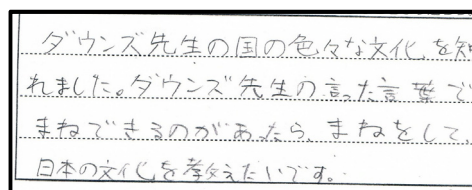 ダウンズ先生の国の色々な文化を知
れました。ダウンズ先生の言った言葉で
まねできるのがあったら、まねをして、
日本の文化を教えたいです。